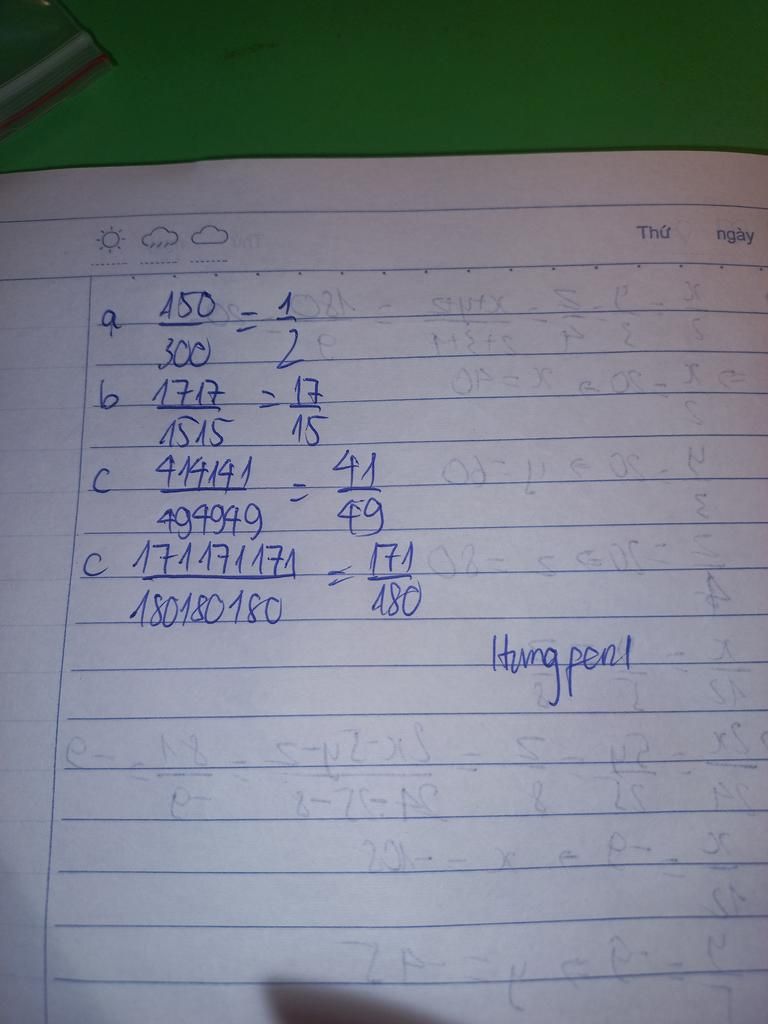 Thứ ngày
a 150/300 = 1/2
b 1717/1515 = 17/15
c 414141/494949 = 41/49
c 171171171/180180180 = 171/180
Hungpen1